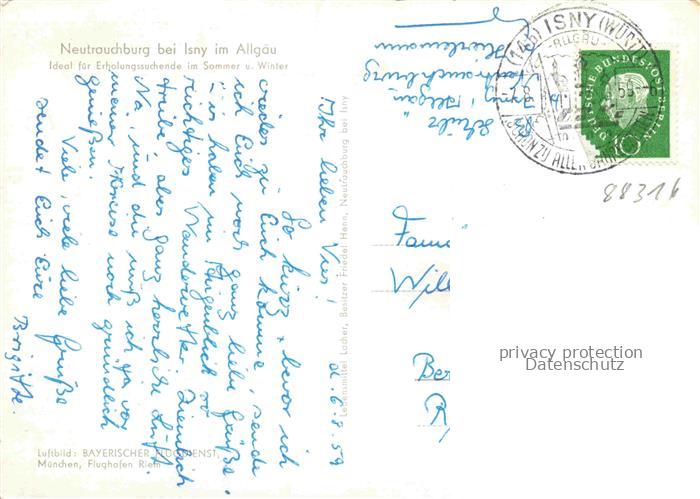 Neutrauchburg bei Isny im Allgäu
Ideal für Erholungssuchende im Sommer u. Winter
d. 6.8.59
Ihr lieben Vier!
So kurz, bevor ich
wieder zu Euch komme, sende
ich Euch noch ganz liebe Grüße.
Wir haben im Augenblick so
richtiges Wanderwetter. Ziemlich
trübe, aber ganz herrliche Luft.
Na, und die muß ich ja vor
meiner Abreise noch gründlich
genießen.
Viele, viele liebe Grüße
sendet Euch Eure
Brigitte.
Luftbild: BAYERISCHER FLUGDIENST,
München, Flughafen Riem
Lebensmittel Locher, Besitzer Friedel Henn, Neutrauchburg bei Isny
Neutrauchburg
Isny / Allgäu
ISNY (WÜRTT)
ALLGÄU
SCHÖN ZU ALLEN JAHRESZEITEN
DEUTSCHE BUNDESPOST BERLIN
10
88316
Fami
Wil
Ber
R
privacy protection
Datenschutz